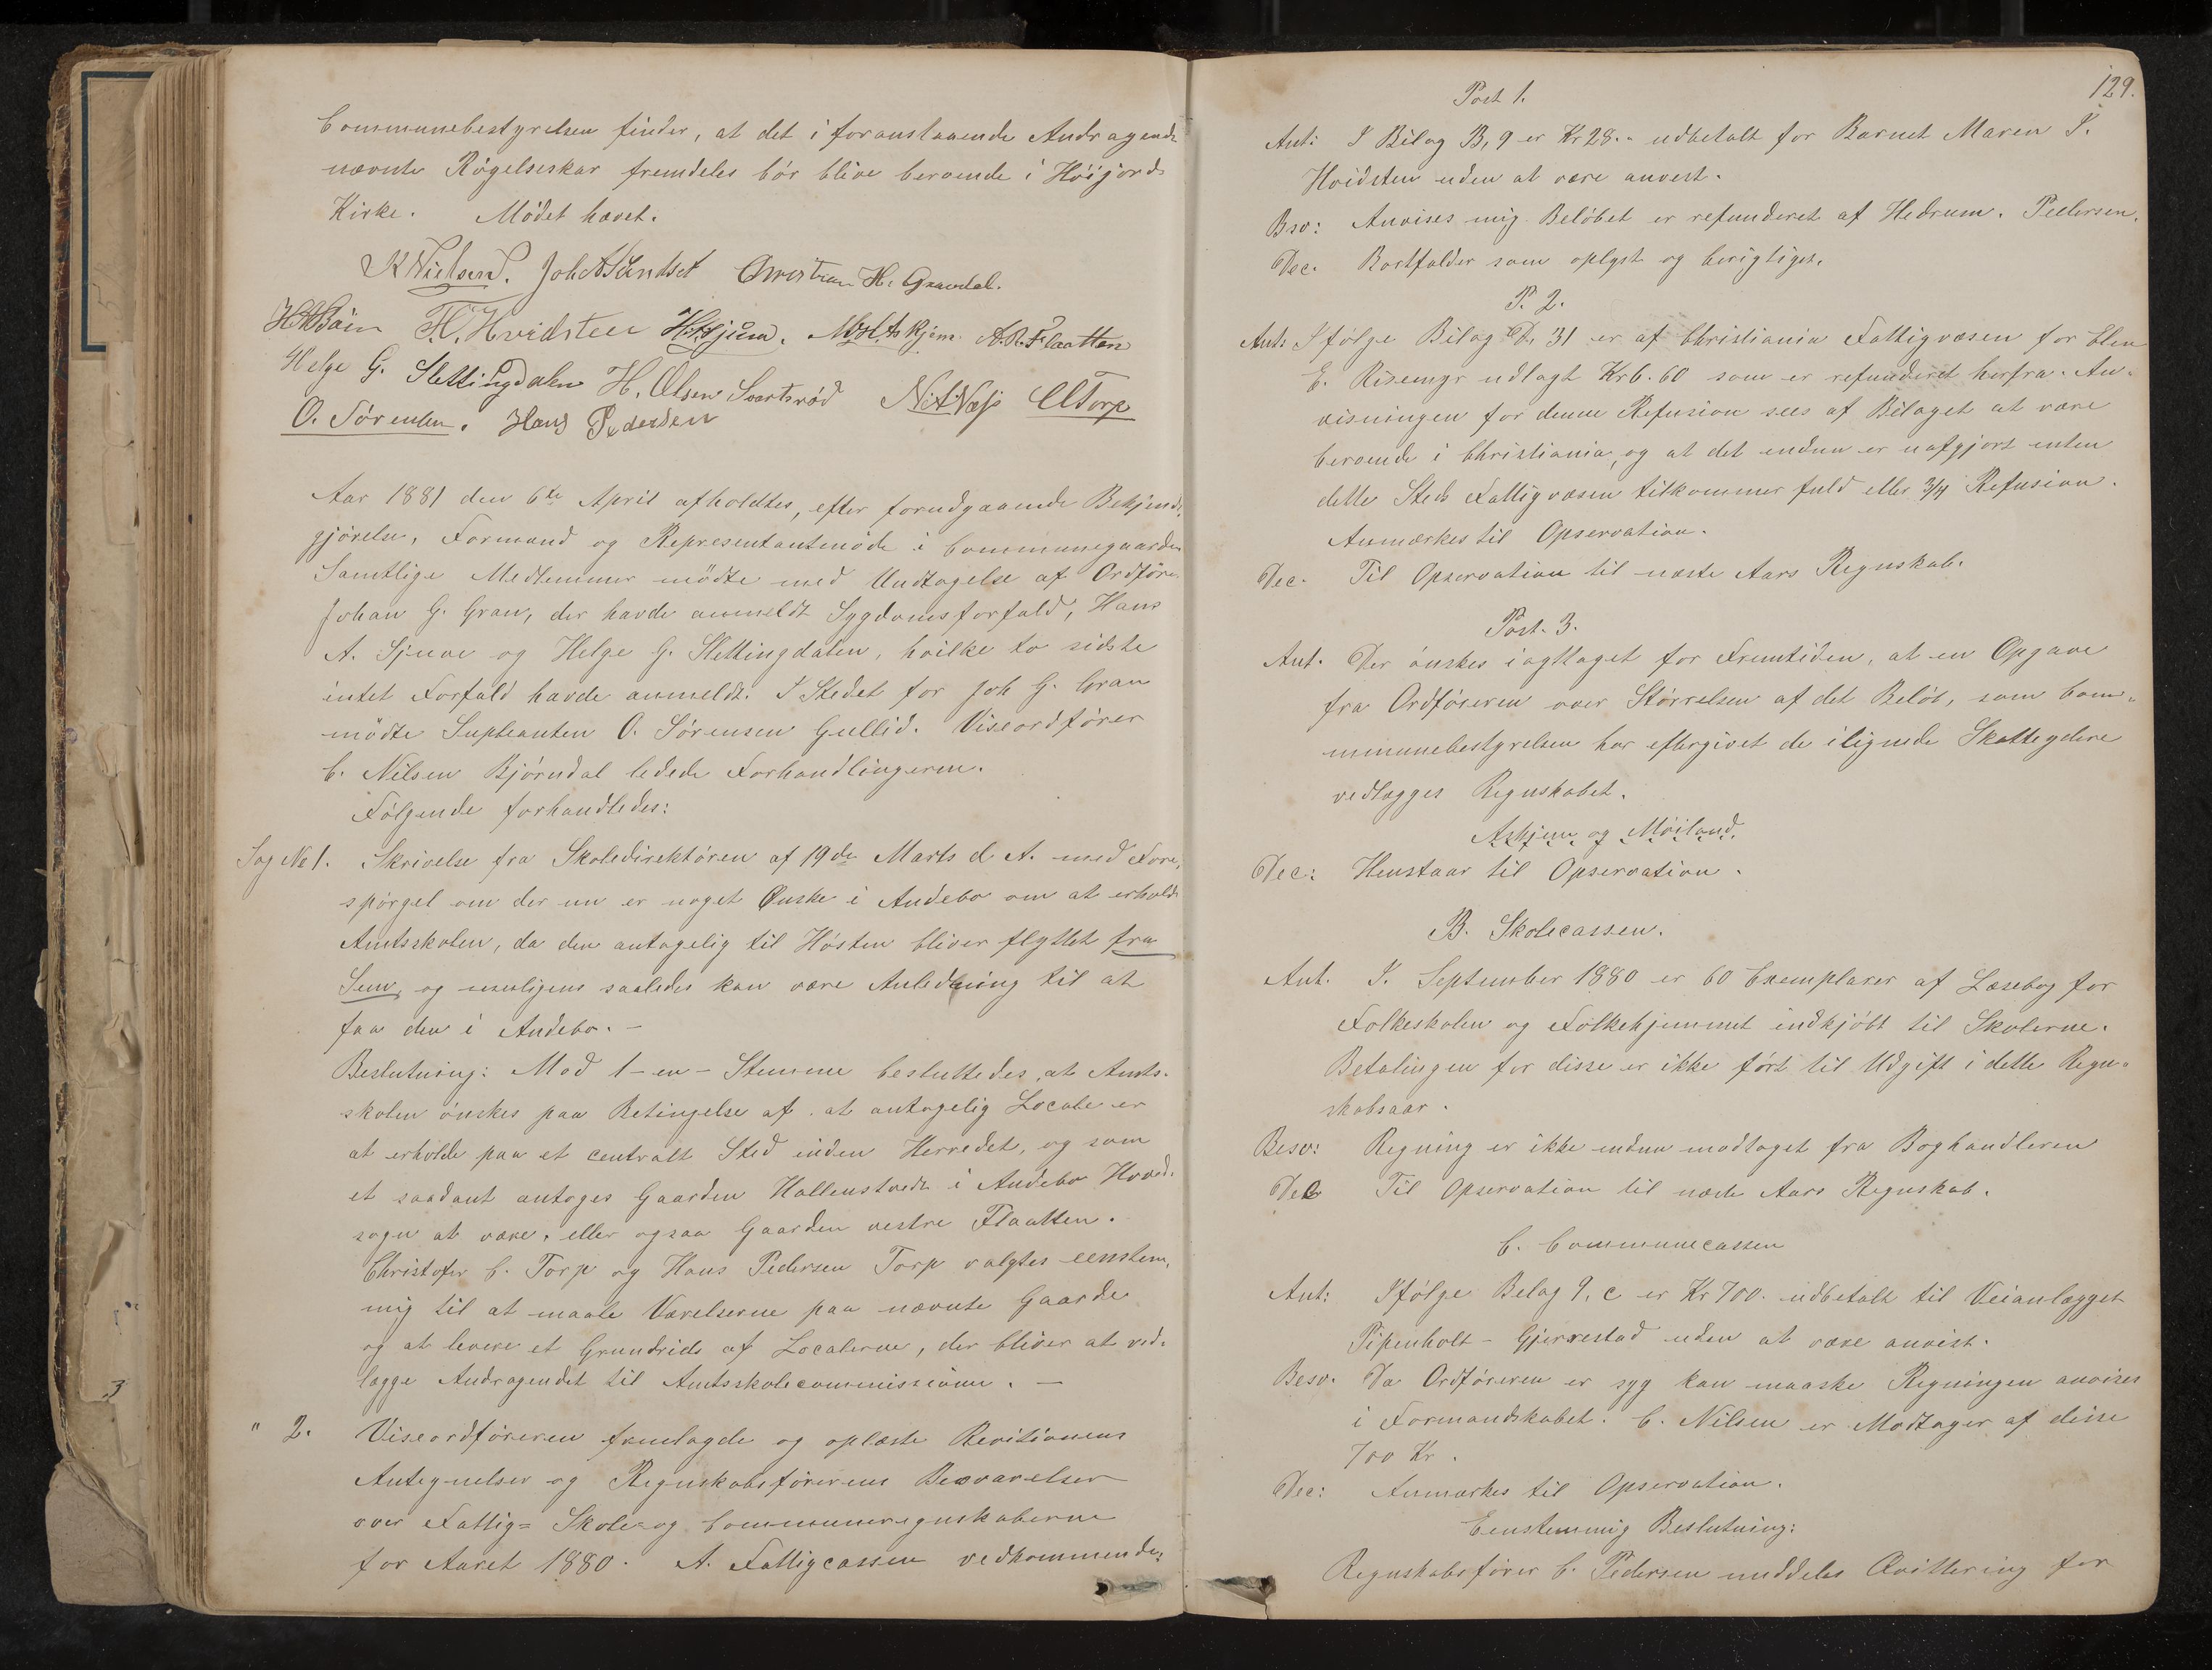 Communebestyrelsen finder, at det i foranstaaende Andragende
nævnte Røgelseskar fremdeles bør blive beroende i Høijords
Kirke. Mødet hævet.
K Nielsen. Joh A Sundset Christian H. Gravdal.
H. Hvidsten A. R. Flaatten
Helge G. Slettingdalen H. Olsen Svartsrød C Torp
O. Sørensen. Hans Pedersen
Aar 1881 den 6te April afholdtes, efter forudgaaende Bekjendt-
gjørelse, Formand og Representantmøde i Communegaarden
Samtlige Medlemmer mødte med Undtagelse af Ordfører
Johan G. Gran, der havde anmeldt Sygdomsforfald, Hans
A. Sjuve og Helge G. Slettingdalen, hvilke to sidste
intet Forfald havde anmeldt. I Stedet for Joh G. Gran
mødte Supleanten O. Sørensen Gullid. Viseordfører
C. Nilsen Bjørndal ledede Forhandlingerne.
Følgende forhandledes:
Sag No 1. Skrivelse fra Skoledirektøren af 19de Marts d. A. med Fore-
spørgel om der nu er noget Ønske i Andebo om at erholde
Amtsskolen, da den antagelig til Høsten bliver flyttet fra
Sem, og muligens saaledes kan være Anledning til at
faa den i Andebo. -
Beslutning: Mod 1 - en - Stemme besluttedes, at Amts-
skolen ønskes paa Betingelse af at antagelig Locale er
at erholde paa et centralt Sted inden Herredet, og som
et saadant antages Gaarden Hallenstvedt i Andebo Hoved-
sogn at være, eller ogsaa Gaarden vestre Flaatten.
Christofer C. Torp og Hans Pedersen Torp valgtes eenstem-
mig til at maale Værelserne paa nævnte Gaarde
og at levere et Grundrids af Localerne, der bliver at ved-
lægge Andragendet til Amtsskolecommissionen. -
" 2. Viseordføreren fremlagde og oplæste Revitionens
Antegnelser og Regnskabsførerens Besvarelser
over Fattig= Skole= og Communeregnskaberne
for Aaret 1880. A. Fattigcassen vedkommende:
129.
Post 1.
Ant: I Bilag B, 9 er Kr 28.- udbetalt for Barnet Maren P.
Hvidsten uden at være anvist.
Bsv: Anvises mig. Beløbet er refunderet af Hedrum. Pedersen.
Dec. Bortfalder som oplyst og berigtiget.
P. 2.
Ant: Ifølge Bilag D. 31 er af Christiania Fattigvæsen for Elen
E. Risemyr udlagt Kr 6.60 som er refunderet herfra. An-
visningen for denne Refusion sees af Bilaget at være
beroende i Christiania, og at det endnu er uafgjort enten
dette Steds Fattigvæsen tilkommer fuld eller 3/4 Refusion.
Anmærkes til Opservation.
Dec. Til Opservation til næste Aars Regnskab.
Post. 3.
Ant. Der ønskes iagttaget for Fremtiden, at en Opgave
fra Ordføreren over Størrelsen af det Beløb, som Com-
munebestyrelsen har eftergivet de ilignede Skatteydere
vedlægges Regnskabet.
Askjem og Møiland.
Dec: Henstaar til Opservation.
B. Skolecassen.
Ant. I. September 1880 er 60 Exemplarer af Læsebog for
Folkeskolen og Folkehjemmet indkjøbt til Skolerne.
Betalingen for disse er ikke ført til Udgift i dette Regn-
skabsaar.
Besv: Regning er ikke endnu modtaget fra Boghandleren
Dec Til Opservation til næste Aars Regnskab.
C. Communecassen
Ant: Ifølge Belag 9, c er Kr 700. udbetalt til Veianlægget
Pipenholt - Gjerrestad uden at være anvist.
Besv. Da Ordføreren er syg kan maaske Regningen anvises
i Formandskabet. C. Nilsen er Modtager af disse
700 Kr.
Dec: Anmærkes til Opservation.
Eenstemmig Beslutning:
Regnskabsfører C. Pedersen meddeles Qvittering for